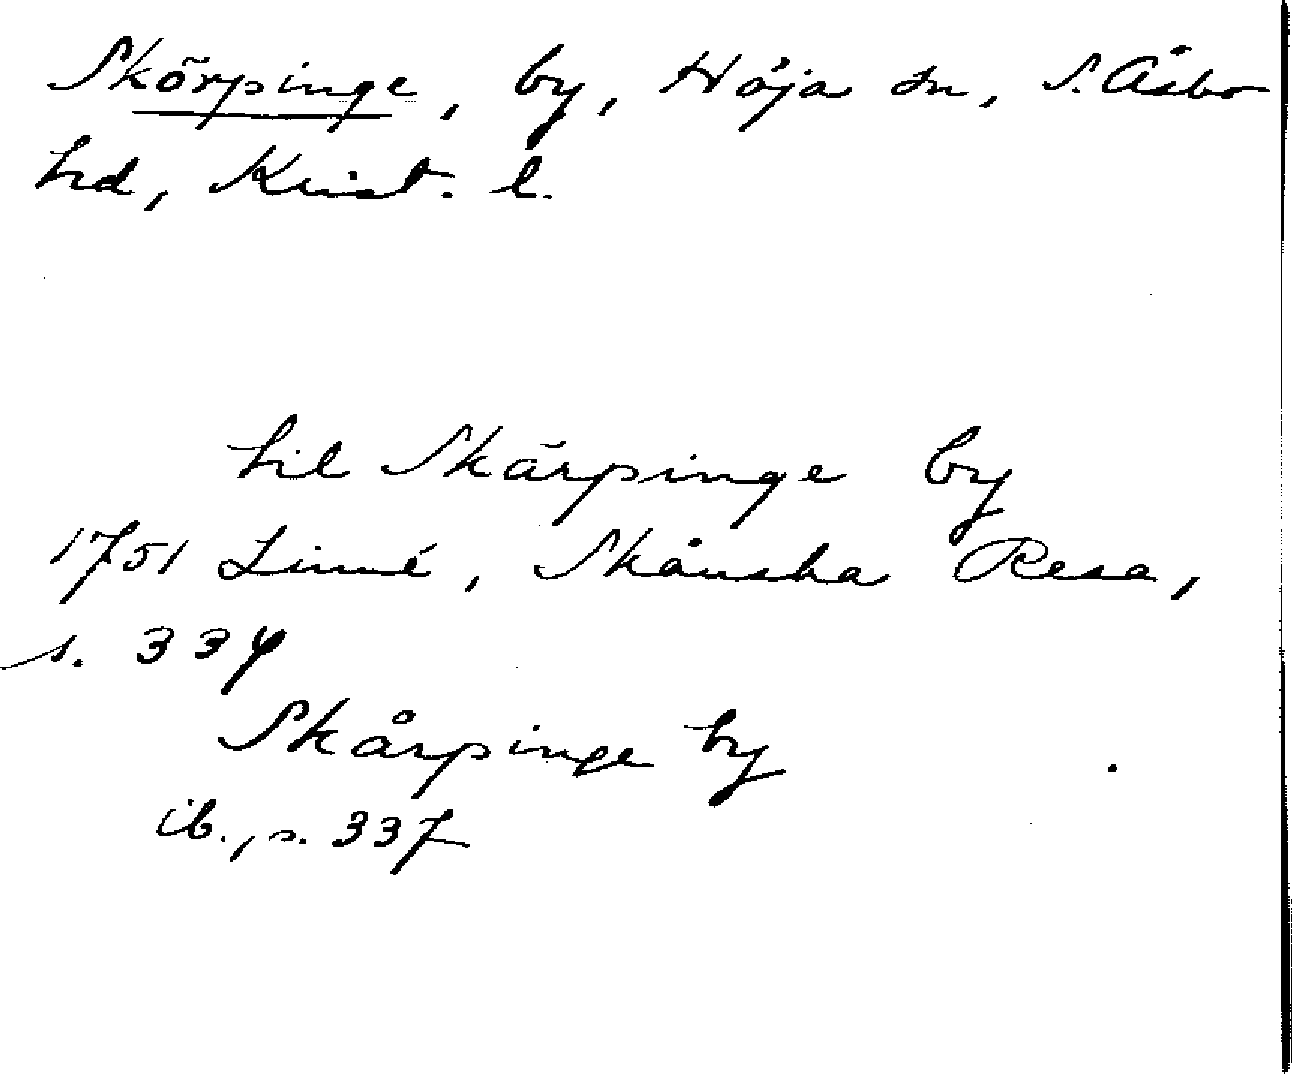 Skörpinge, by, Höja sn, S. Åsbo
hd, Krist. l.
til Skärpinge by
1751 Linné, Skånska Resa,
s. 334
Skårpinge by
ib., s. 337